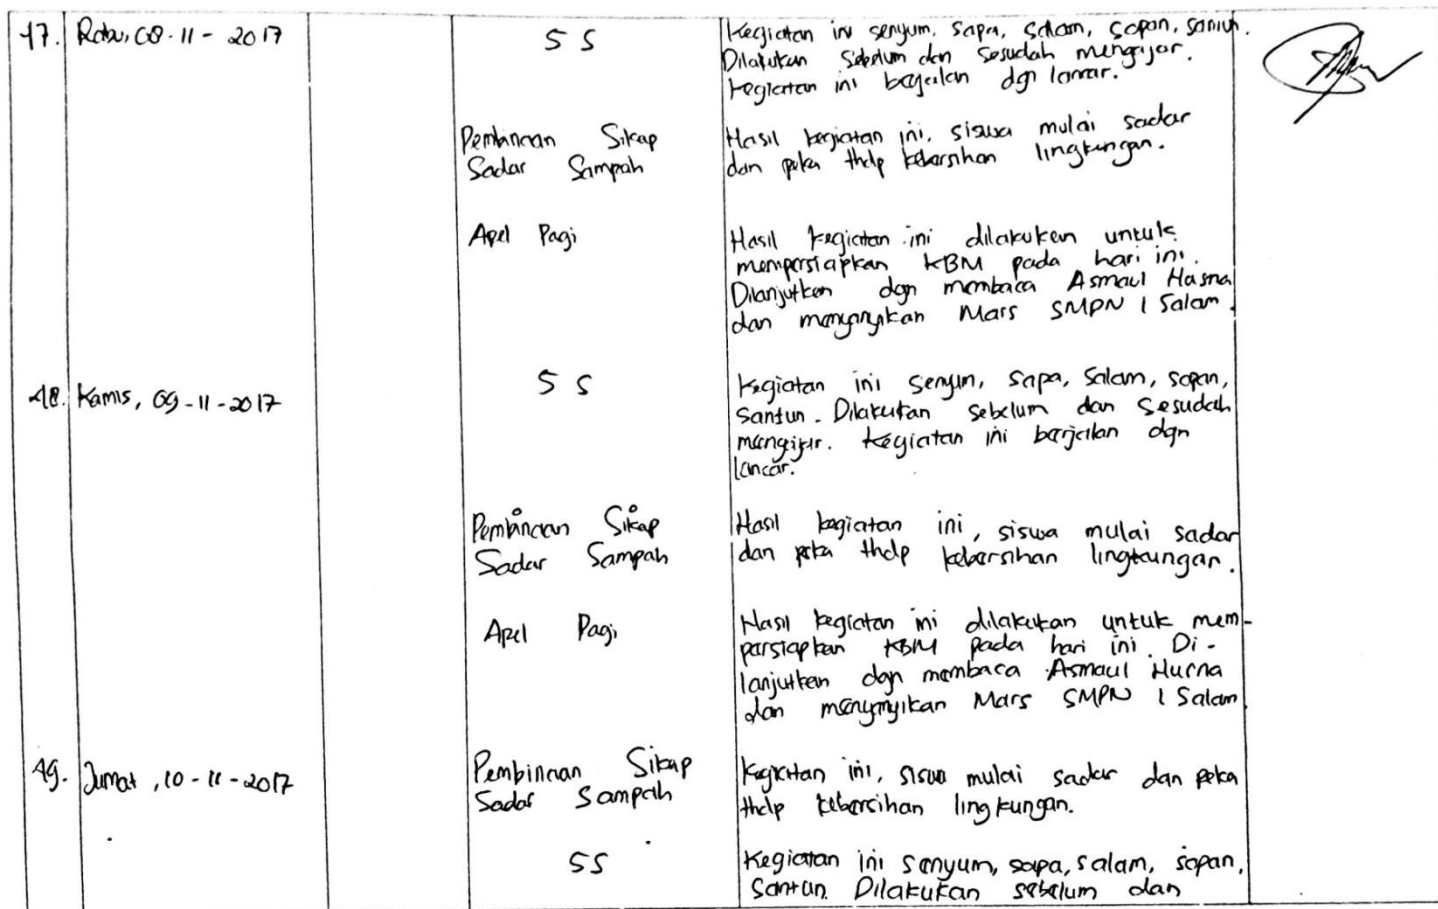 47. Rabu, 08-11-2017
5 S
Kegiatan ini senyum, sapa, salam, sopan, santun.
Dilakukan sebelum dan sesudah mengajar.
Kegiatan ini berjalan dgn lancar.
Pembinaan Sikap
Sadar Sampah
Hasil kegiatan ini, siswa mulai sadar
dan peka thdp kebersihan lingkungan.
Apel Pagi
Hasil kegiatan ini dilakukan untuk
mempersiapkan KBM pada hari ini.
Dilanjutkan dgn membaca Asmaul Hasna
dan menyanyikan Mars SMPN 1 Salam.
48. Kamis, 09-11-2017
5 S
Kegiatan ini senyum, sapa, salam, sopan,
santun. Dilakukan sebelum dan sesudah
mengajar. Kegiatan ini berjalan dgn
lancar.
Pembinaan Sikap
Sadar Sampah
Hasil kegiatan ini, siswa mulai sadar
dan peka thdp kebersihan lingkungan.
Apel Pagi
Hasil kegiatan ini dilakukan untuk mem-
persiapkan KBM pada hari ini. Di-
lanjutkan dgn membaca Asmaul Husna
dan menyanyikan Mars SMPN 1 Salam
49. Jumat, 10-11-2017
Pembinaan Sikap
Sadar Sampah
Kegiatan ini, siswa mulai sadar dan peka
thdp kebersihan lingkungan.
5S
Kegiatan ini senyum, sapa, salam, sopan,
santun. Dilakukan sebelum dan